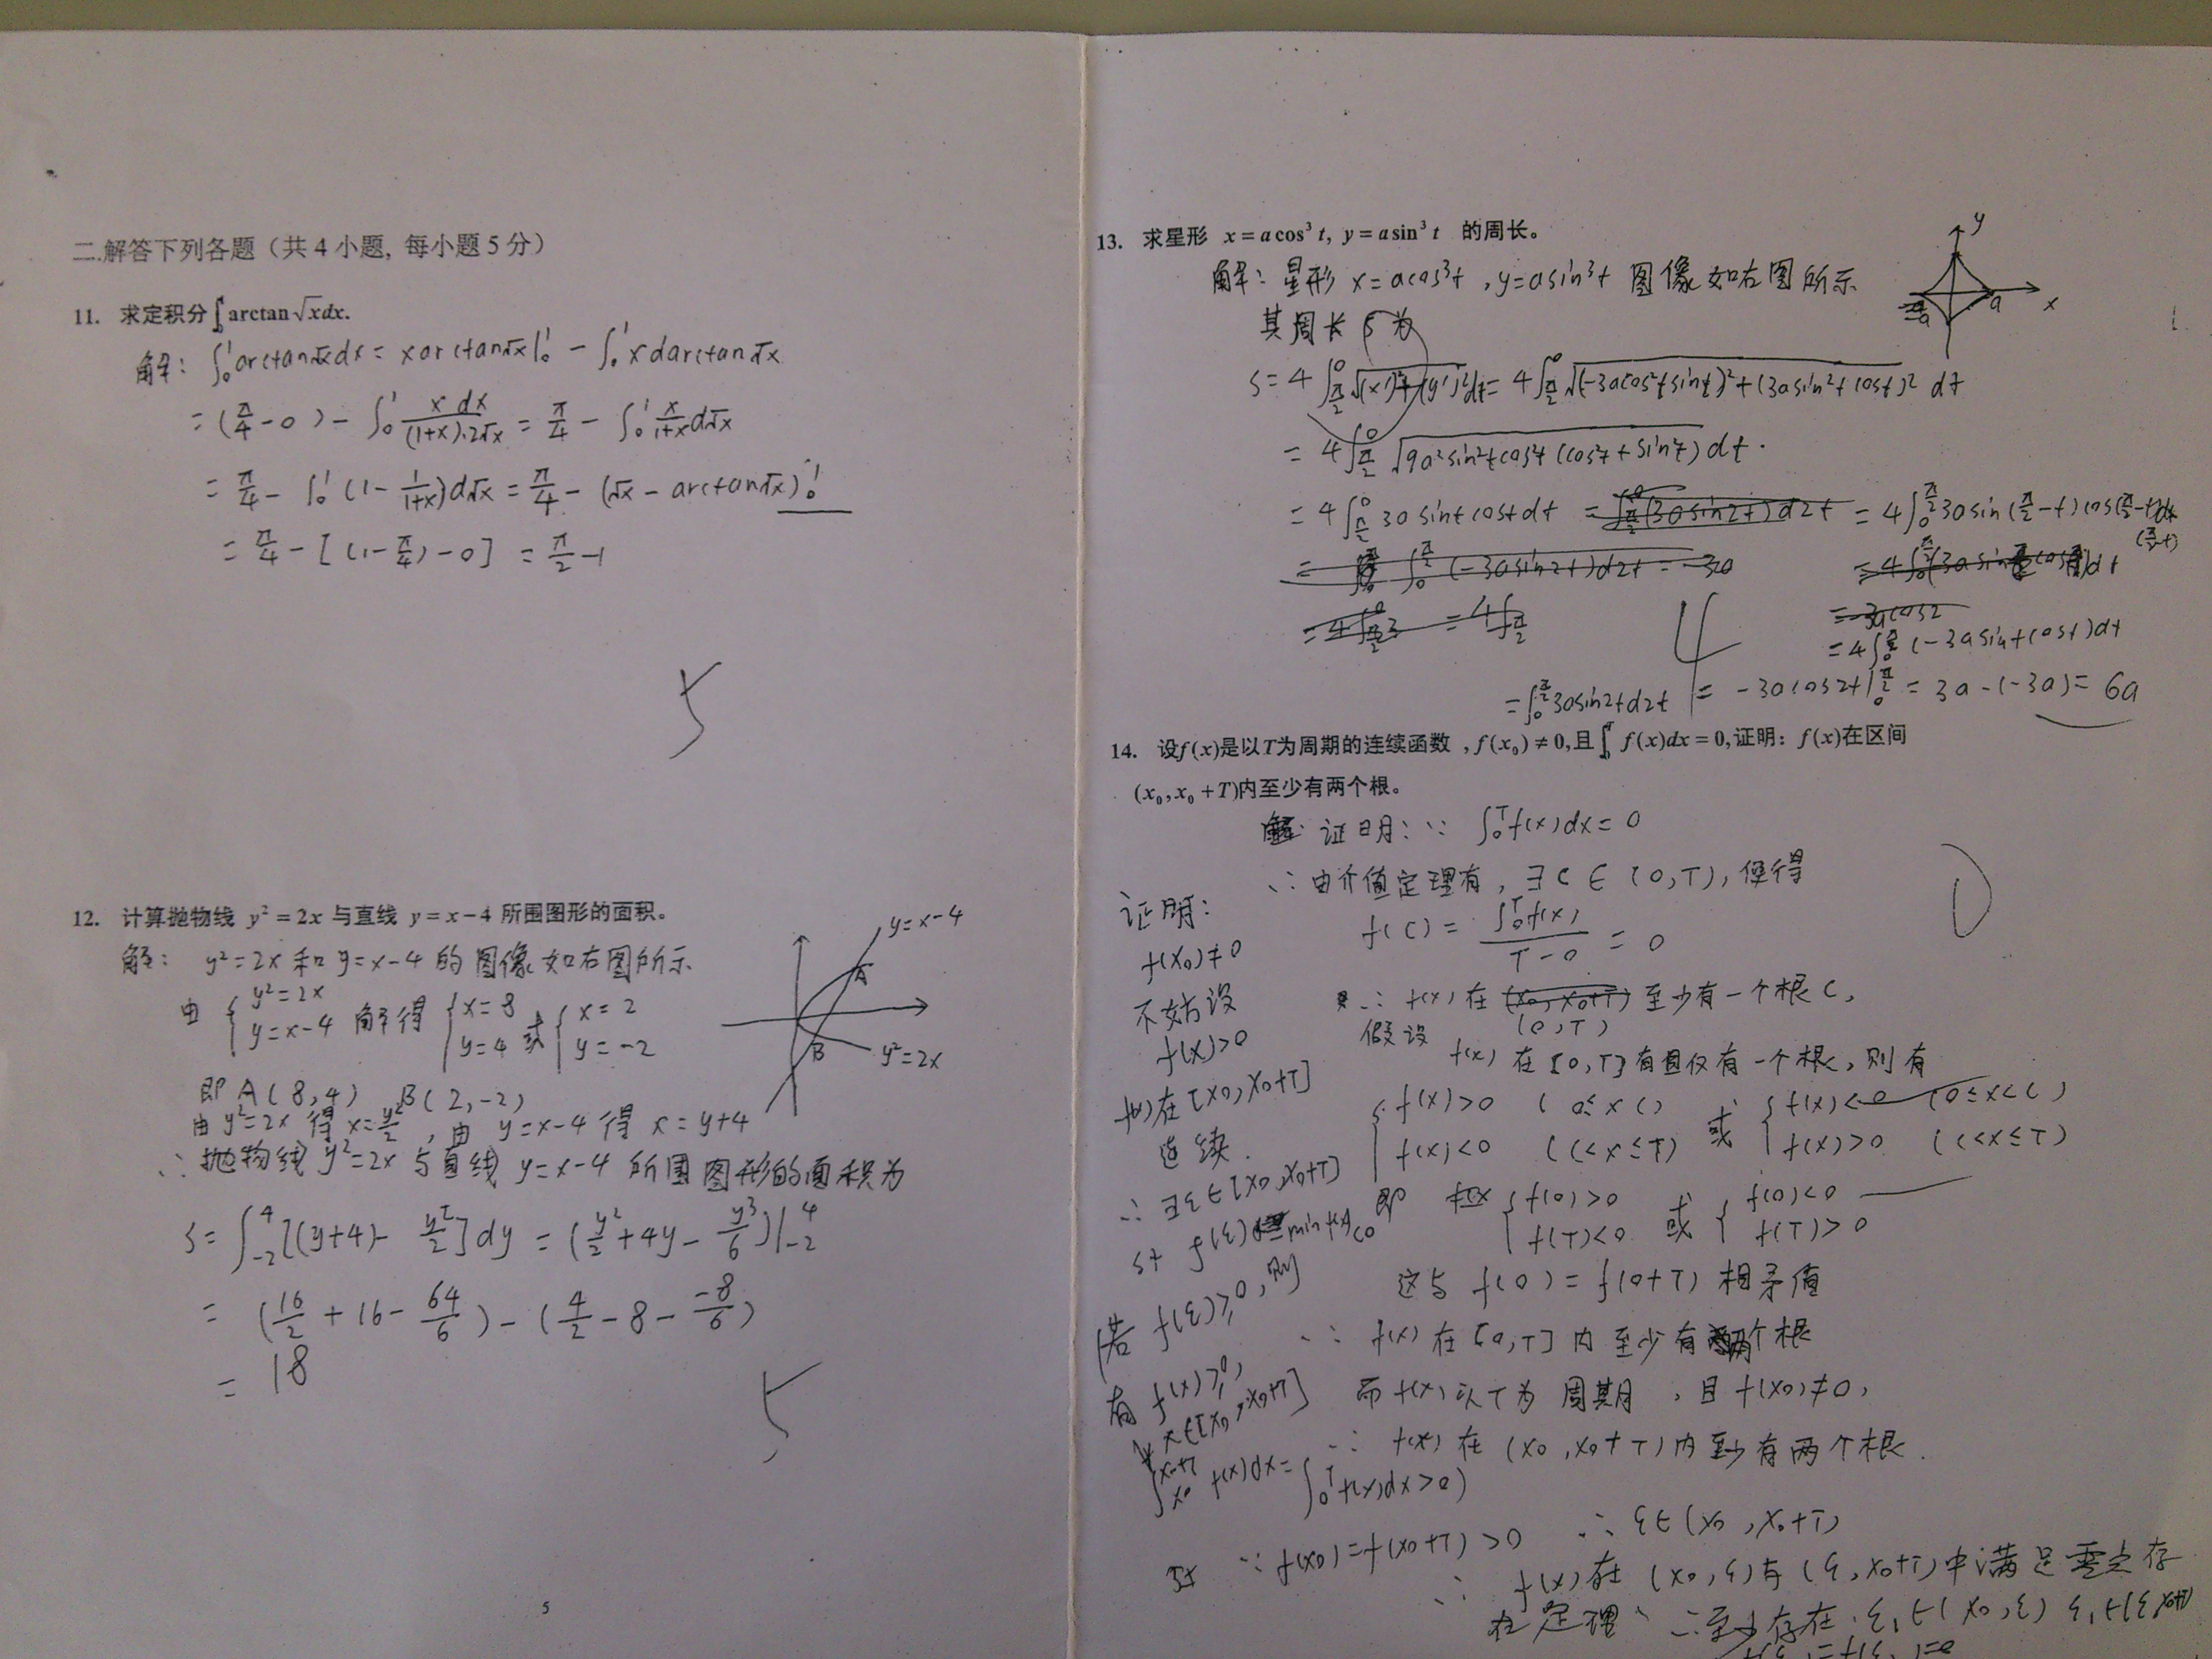 二.解答下列各题（共 4 小题, 每小题 5 分）
11. 求定积分∫₀¹ arctan√xdx.
解: ∫₀¹arctan√xdx = xarctan√x|₀¹ - ∫₀¹ x darctan√x
= (π/4 - 0) - ∫₀¹ x dx/((1+x)·2√x) = π/4 - ∫₀¹ x/(1+x) d√x
= π/4 - ∫₀¹ (1 - 1/(1+x))d√x = π/4 - (√x - arctan√x)|₀¹
= π/4 - [(1-π/4) - 0] = π/2 - 1
5
12. 计算抛物线 y² = 2x 与直线 y = x - 4 所围图形的面积。
解: y²=2x 和 y=x-4 的图像如右图所示
y=x-4
A
B
y²=2x
由 { y²=2x y=x-4 解得 { x=8 y=4 或 { x=2 y=-2
即 A(8,4) B(2,-2)
由 y²=2x 得 x=y²/2, 由 y=x-4 得 x=y+4
∴ 抛物线 y²=2x 与直线 y=x-4 所围图形的面积为
S = ∫₋₂⁴[(y+4) - y²/2]dy = (y²/2+4y - y³/6)|₋₂⁴
= (16/2 + 16 - 64/6) - (4/2 - 8 - -8/6)
= 18
5
5
13. 求星形 x = a cos³ t, y = a sin³ t 的周长。
解: 星形 x=acos³t, y=asin³t 图像如右图所示
y
x
a
-a
其周长 S 为
S = 4∫_{π/2}^0 √((x')²+(y')²)dt = 4∫_{π/2}^0 √((-3acos²tsint)²+(3asin²tcost)²) dt
= 4∫_{π/2}^0 √(9a²sin²tcos²t(cos²t+sin²t)) dt.
= 4∫_{π/2}^0 3asintcostdt = 4∫₀^{π/2}3asin(π/2-t)cos(π/2-t)d(π/2-t)
= 4∫₀^{π/2}(-3asintcost)dt
= ∫₀^{π/2}3asin2td2t = -3acos2t|₀^{π/2} = 3a-(-3a) = 6a
4
14. 设f(x)是以T为周期的连续函数, f(x₀) ≠ 0,且∫₀ᵀ f(x)dx = 0,证明: f(x)在区间
(x₀, x₀ + T)内至少有两个根。
证明: ∵ ∫₀ᵀf(x)dx = 0
∴ 由介值定理有, ∃C∈(0,T), 使得
f(C) = ∫₀ᵀf(x)/(T-0) = 0
∴ f(x) 在 (0,T) 至少有一个根 C,
假设 f(x) 在 [0,T] 有且仅有一个根C, 则有
{ f(x)>0 (0≤x<C) f(x)<0 (C<x≤T) 或 { f(x)<0 (0≤x<C) f(x)>0 (C<x≤T)
即 { f(0)>0 f(T)<0 或 { f(0)<0 f(T)>0
这与 f(0) = f(0+T) 相矛值
∴ f(x) 在 [0,T] 内至少有两个根
而 f(x) 以 T 为周期, 且 f(x₀)≠0,
∴ f(x) 在 (x₀, x₀+T) 内至少有两个根.
0
证明:
f(x₀)≠0
不妨设
f(x)>0
f(x)在[x₀,x₀+T]
连续.
∴ ∃ξ∈[x₀,x₀+T]
st f(ξ) min f(x)<0
(若 f(ξ)≥0, 则
有 f(x)≥0,
∀x∈[x₀,x₀+T]
∫_{x₀}^{x₀+T} f(x)dx = ∫₀ᵀf(x)dx>0)
∵ f(x₀)=f(x₀+T)>0 ∴ ξ∈(x₀,x₀+T)
∴ f(x)在 (x₀,ξ)与(ξ,x₀+T)中满足零点存
在定理 ∴至少存在 ξ₁∈(x₀,ξ)